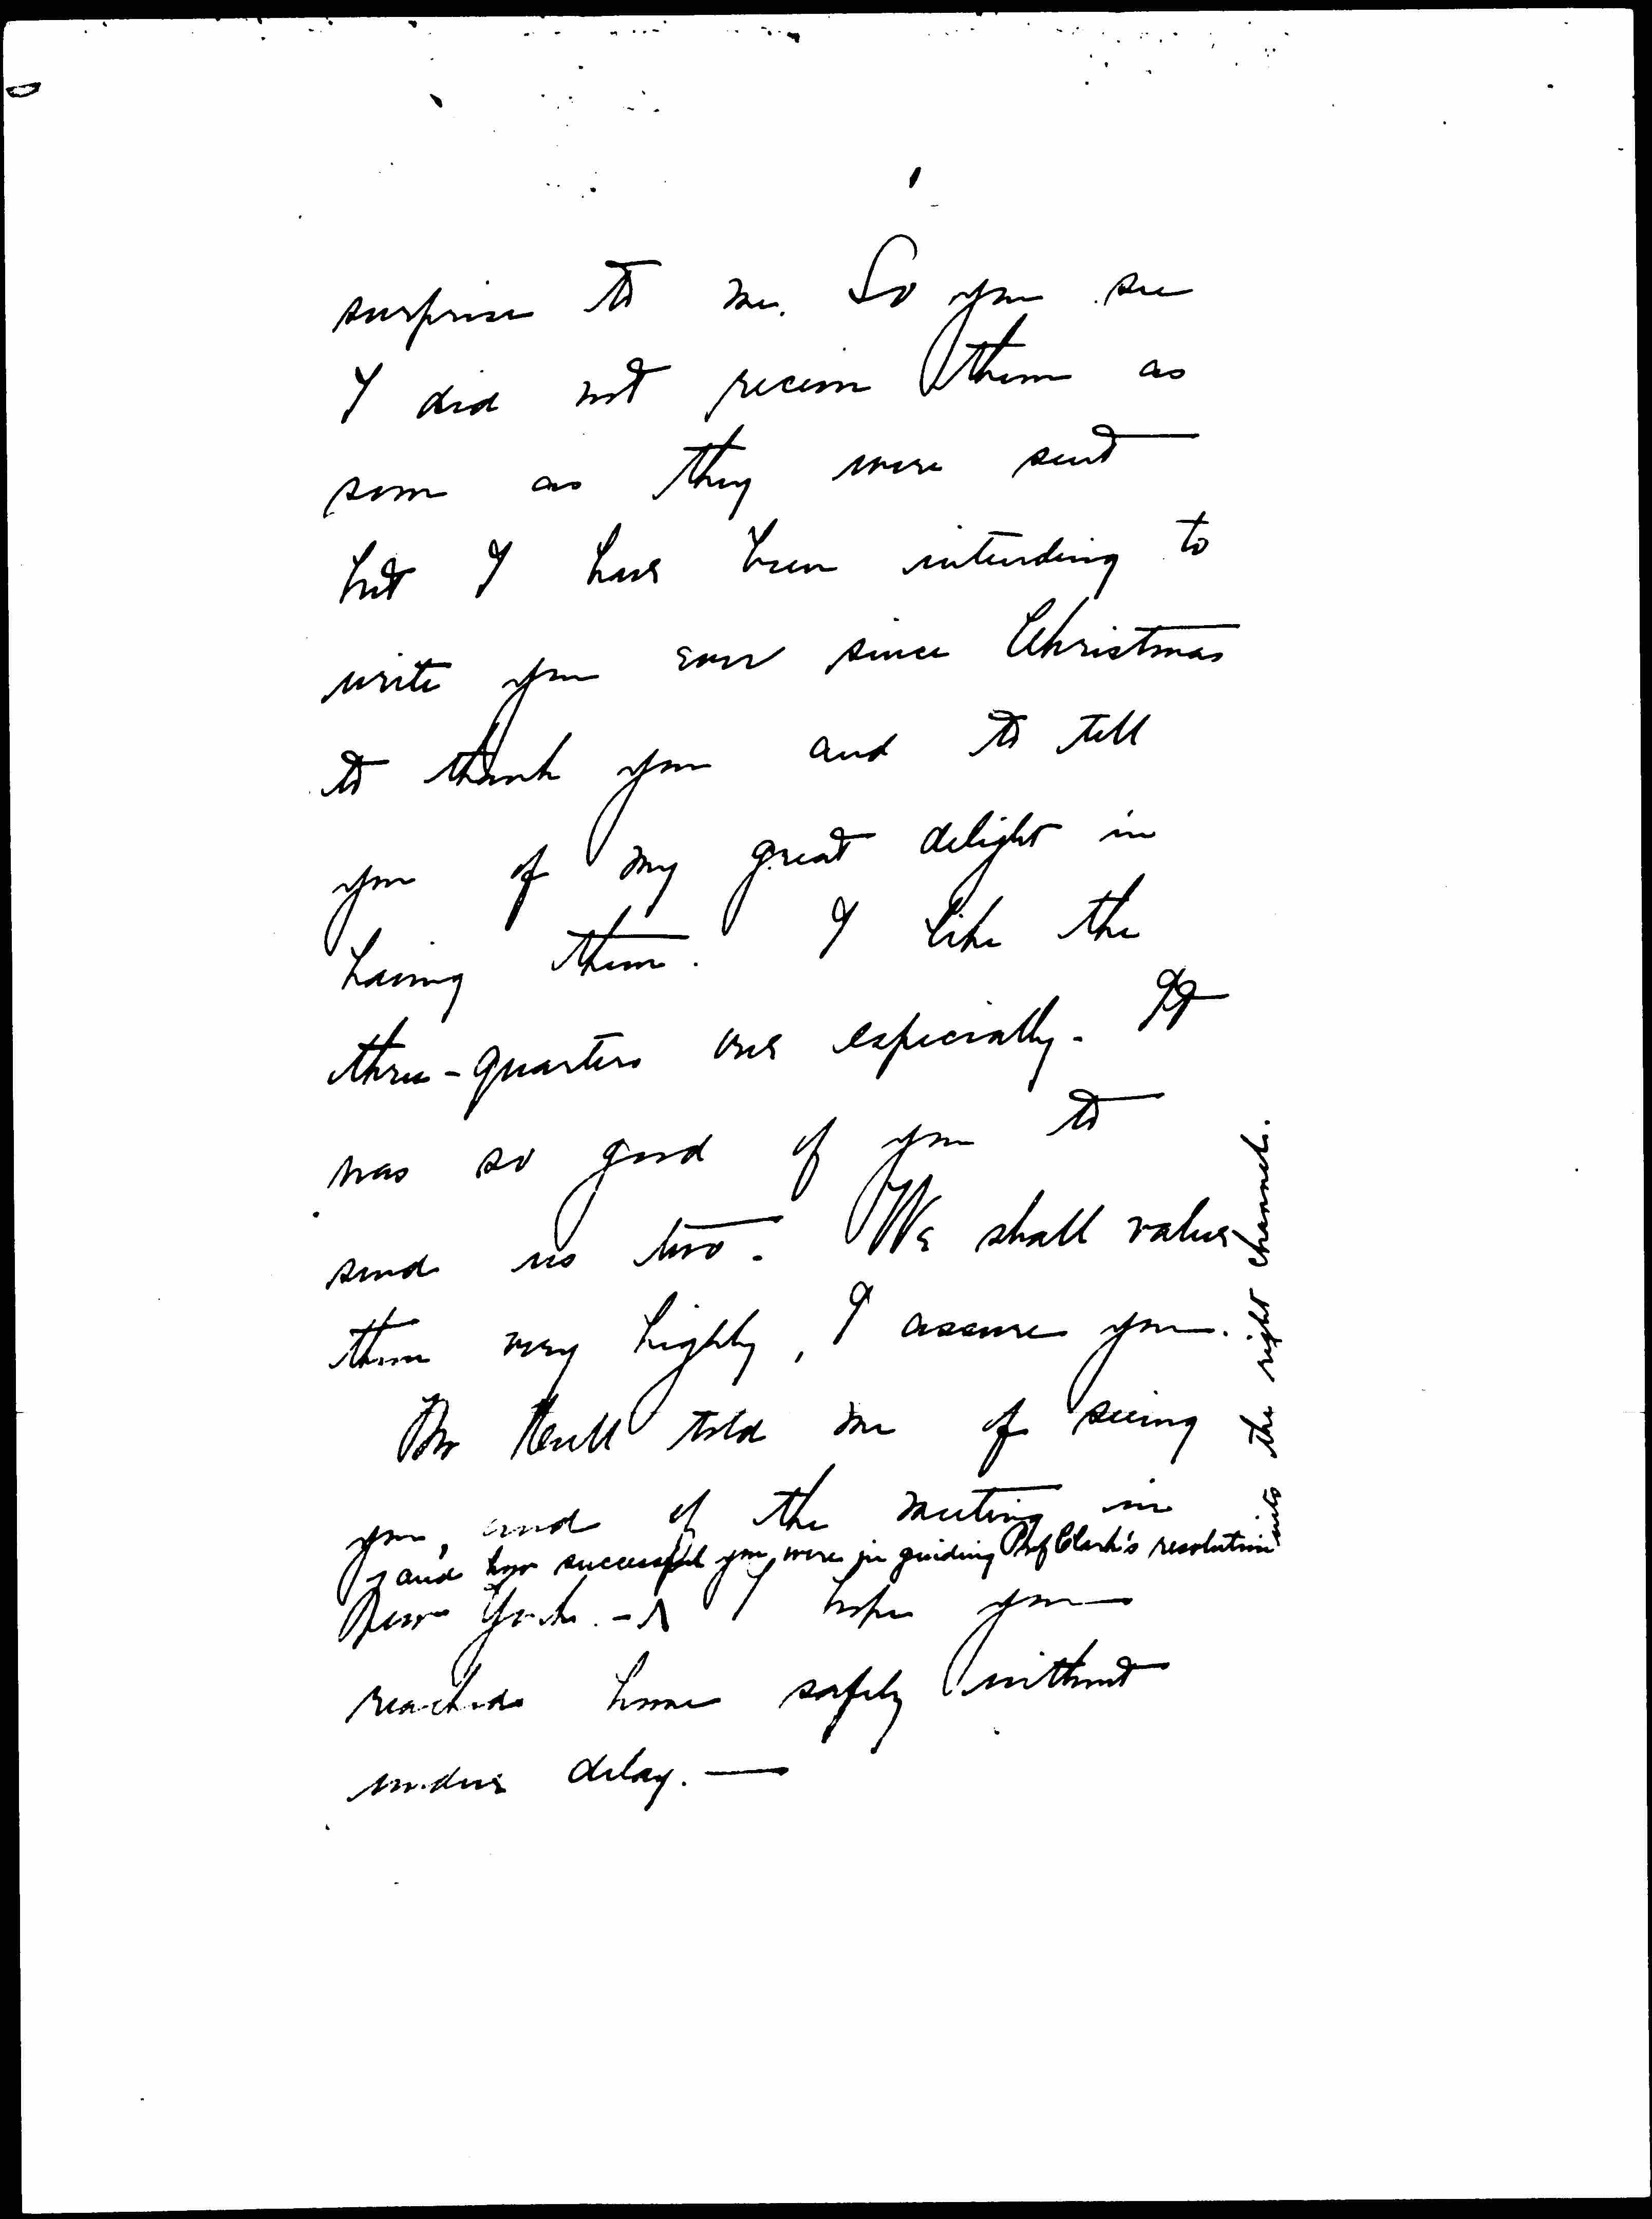 surprise to me. So you see
I did not receive them as
soon as they were sent
but I have been intending to
write you ever since Christmas
to thank you and to tell
you of my great delight in
having them. I like the
three-quarters one especially. It
was so good of you to
send us two. We shall value
them very highly, I assure you.
told me of seeing
you, and of the meeting in
and how successful you were in guiding Prof Clark's resolution
into the right channels.
New York. - I hope you
reached home safely without
undue delay. —